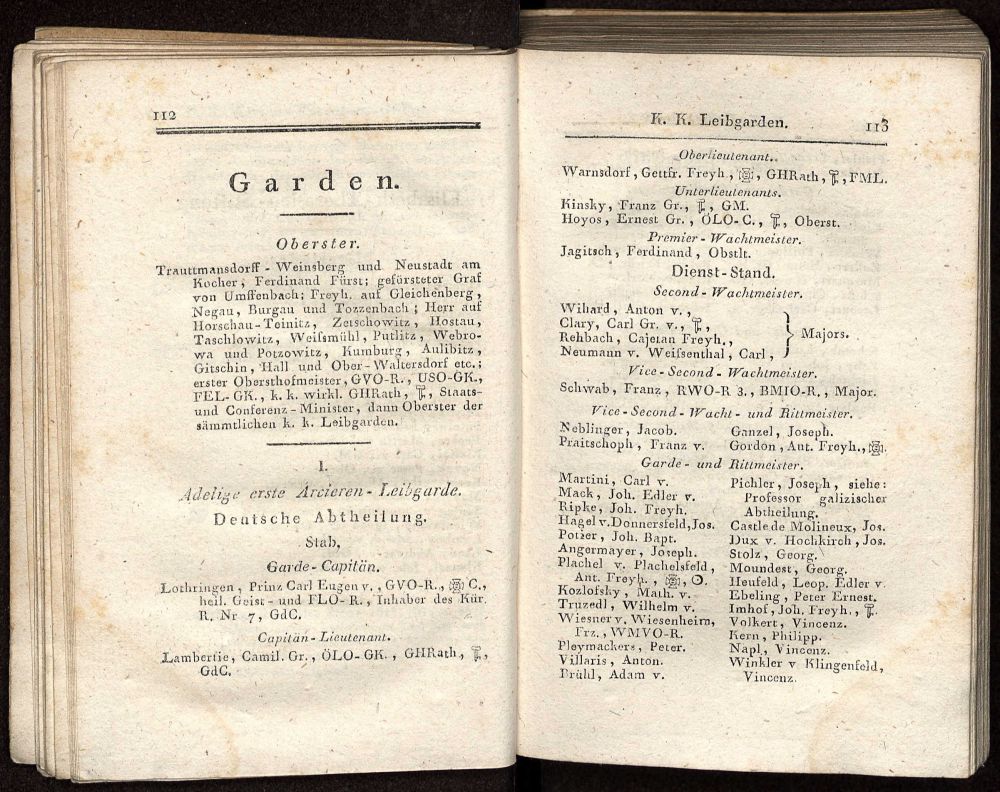 112
Garden.
Oberster.
Trauttmansdorff-Weinsberg und Neustadt am
Kocher, Ferdinand Fürst; gefürsteter Graf
von Umffenbach; Freyh. auf Gleichenberg,
Negau, Burgau und Tozzenbach; Herr auf
Horschau-Teinitz, Zetschowitz, Hostau,
Taschlowitz, Weifsmühl, Putlitz, Webro-
wa und Potzowitz, Kumburg, Aulibitz,
Gitschin, Hall und Ober-Waltersdorf etc.;
erster Obersthofmeister, GVO-R., USO-GK.,
FEL-GK., k. k. wirkl. GHRath, Staats-
und Conferenz-Minister, dann Oberster der
sämmtlichen k. k. Leibgarden.
I.
Adelige erste Arcieren-Leibgarde.
Deutsche Abtheilung.
Stab,
Garde-Capitän.
Lothringen, Prinz Carl Eugen v., GVO-R., C.,
heil. Geist- und FLO-R., Inhaber des Kür.
R. Nr 7, GdC.
Capitän-Lieutenant.
Lambertie, Camil. Gr., ÖLO-GK., GHRath,
GdC.
K. K. Leibgarden. 113
Oberlieutenant..
Warnsdorf, Gettfr. Freyh., GHRath, FML.
Unterlieutenants.
Kinsky, Franz Gr., GM.
Hoyos, Ernest Gr., ÖLO-C., Oberst.
Premier-Wachtmeister.
Jagitsch, Ferdinand, Obstlt.
Dienst-Stand.
Second-Wachtmeister.
Wihard, Anton v.,
Clary, Carl Gr. v.,
Rehbach, Cajetan Freyh.,
Neumann v. Weifsenthal, Carl, } Majors.
Vice-Second-Wachtmeister.
Schwab, Franz, RWO-R 3., BMIO-R., Major.
Vice-Second-Wacht- und Rittmeister.
Neblinger, Jacob.
Praitschoph, Franz v.
Ganzel, Joseph.
Gordon, Ant. Freyh.,
Garde- und Rittmeister.
Martini, Carl v.
Mack, Joh. Edler v.
Ripke, Joh. Freyh.
Hagel v. Donnersfeld, Jos.
Potier, Joh. Bapt.
Angermayer, Joseph.
Plachel v. Plachelsfeld,
Ant. Freyh.,
Kozlofsky, Math. v.
Truzedl, Wilhelm v.
Wiesner v. Wiesenheim,
Frz., WMVO-R.
Pleymackers, Peter.
Villaris, Anton.
Brühl, Adam v.
Pichler, Joseph, siehe:
Professor galizischer
Abtheilung.
Castle de Molineux, Jos.
Dux v. Hochkirch, Jos.
Stolz, Georg.
Moundest, Georg.
Heufeld, Leop. Edler v.
Ebeling, Peter Ernest.
Imhof, Joh. Freyh.,
Volkert, Vincenz.
Kern, Philipp.
Napl, Vincenz.
Winkler v Klingenfeld,
Vincenz.